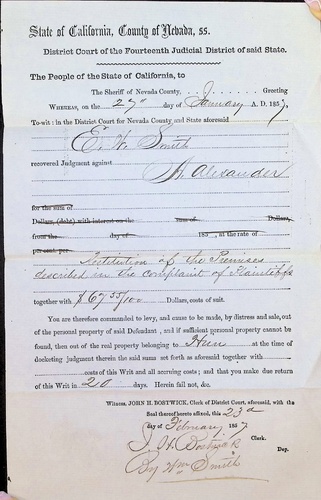 State of California, County of Nevada, ss.
District Court of the Fourteenth Judicial District of said State.
The People of the State of California, to
The Sheriff of Nevada County, Greeting
WHEREAS, on the 27th day of January A. D. 1857
To-wit: in the District Court for Nevada County and State aforesaid
E. W. Smith
recovered Judgment against
A. Alexander
for the sum of
Dollars, (debt) with interest on the sum of Dollars,
from the day of 185 , at the rate of
per cent per
Restitution of the Premises
described in the complaint of Plaintiffs
together with $ 67 55/100 Dollars, costs of suit.
You are therefore commanded to levy, and cause to be made, by distress and sale, out
of the personal property of said Defendant , and if sufficient personal property cannot be
found, then out of the real property belonging to Him at the time of
docketing judgment therein the said sums set forth as aforesaid together with
costs of this Writ and all accruing costs; and that you make due return
of this Writ in 20 days. Herein fail not, &c.
Witness, JOHN H. BOSTWICK, Clerk of District Court, aforesaid, with the
Seal thereof hereto affixed, this 23d
day of February 1857
J. H. Bostwick Clerk.
By Wm Smith Dep.